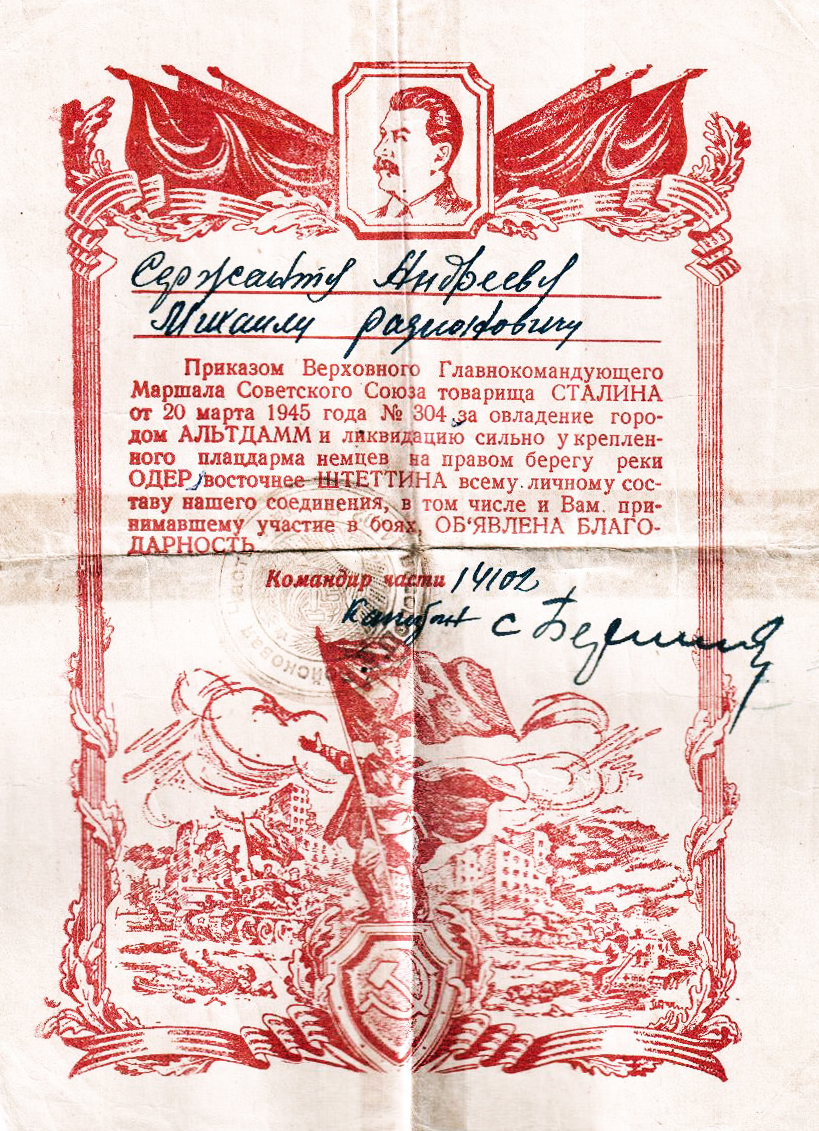 Сержанту Андрееву
Михаилу Радионовичу
Приказом Верховного Главнокомандующего
Маршала Советского Союза товарища СТАЛИНА
от 20 марта 1945 года № 304 за овладение горо-
дом АЛЬТДАММ и ликвидацию сильно укреплен-
ного плацдарма немцев на правом берегу реки
ОДЕР, восточнее ШТЕТТИНА всему личному сос-
таву нашего соединения, в том числе и Вам, при-
нимавшему участие в боях, ОБ'ЯВЛЕНА БЛАГО-
ДАРНОСТЬ.
Командир части 14102
Капитан
Войсковая часть